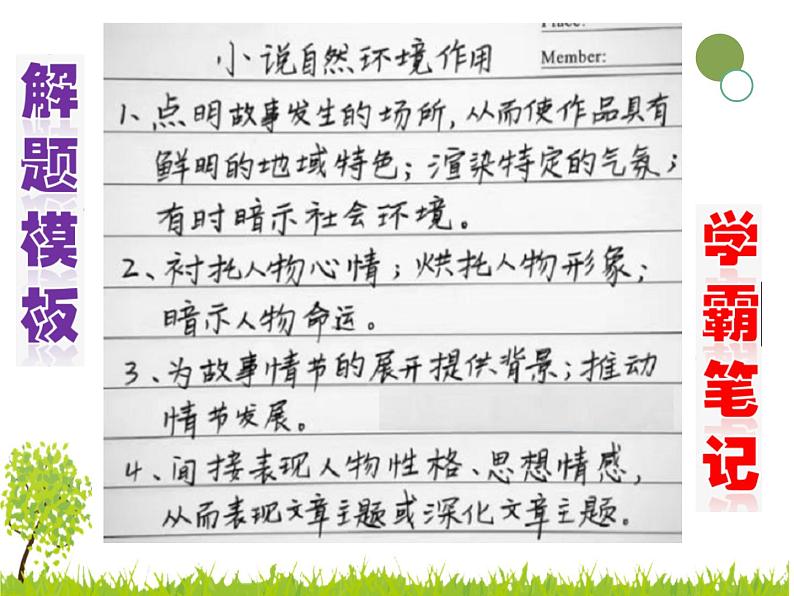 解题模板
Place:
Member:
小说自然环境作用
1、点明故事发生的场所,从而使作品具有
鲜明的地域特色;渲染特定的气氛;
有时暗示社会环境。
2、衬托人物心情;烘托人物形象;
暗示人物命运。
3、为故事情节的展开提供背景;推动
情节发展。
4、间接表现人物性格、思想情感,
从而表现文章主题或深化文章主题。
学霸笔记